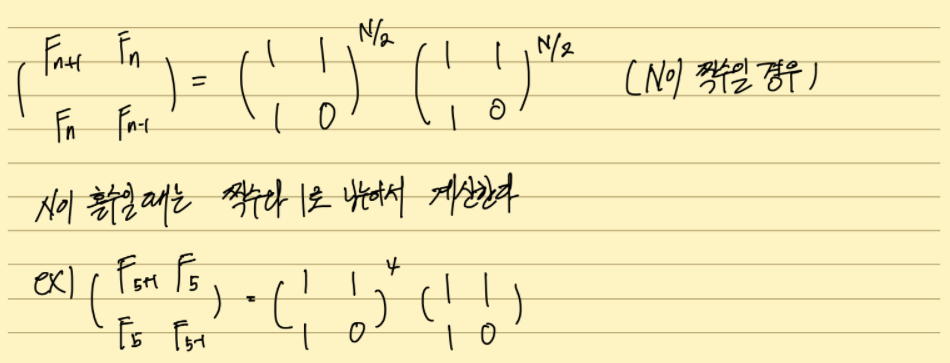 ( F_{n+1} F_n / F_n F_{n-1} ) = ( 1 1 / 1 0 )^{N/2} ( 1 1 / 1 0 )^{N/2} (N이 짝수일 경우)
N이 홀수일 때는 짝수와 1로 나누어서 계산한다
ex) ( F_{5+1} F_5 / F_5 F_{5-1} ) = ( 1 1 / 1 0 )^4 ( 1 1 / 1 0 )